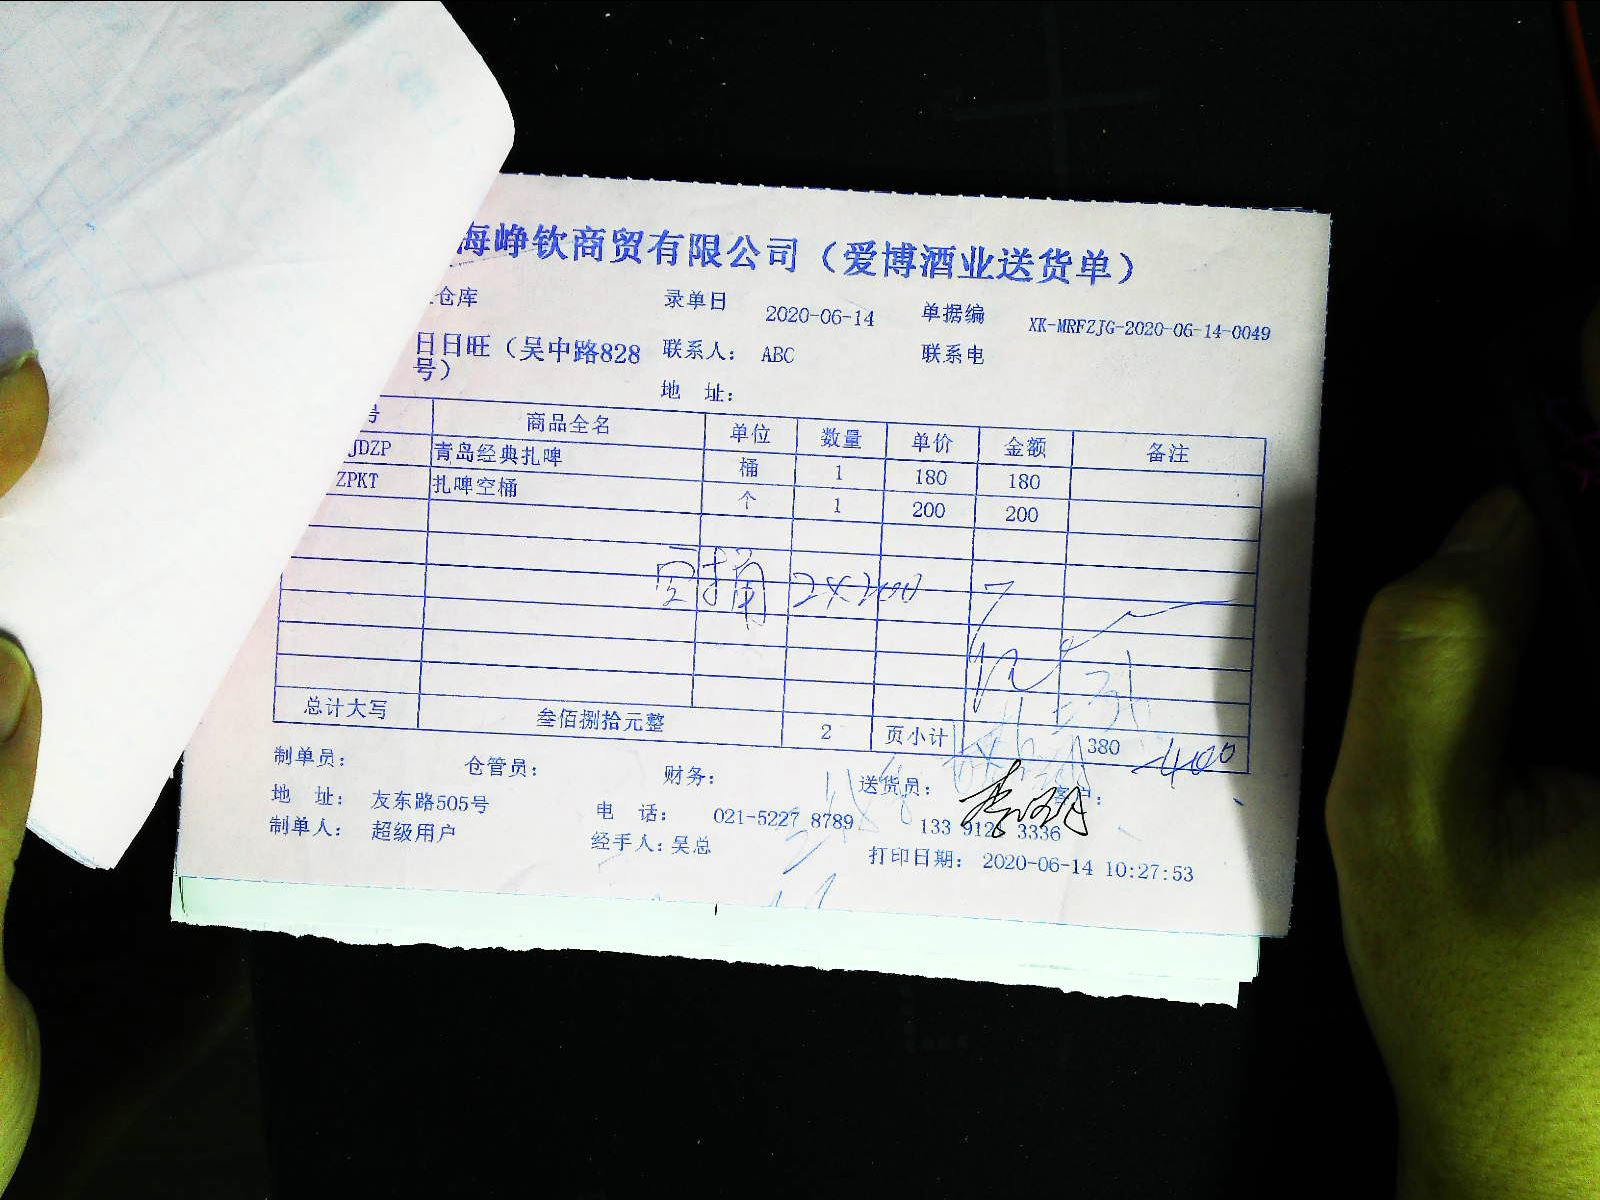 海峥钦商贸有限公司（爱博酒业送货单）
仓库 录单日 2020-06-14 单据编 XK-MRFZJG-2020-06-14-0049
日日旺（吴中路828号） 联系人： ABC 联系电
地 址：
号 商品全名 单位 数量 单价 金额 备注
JDZP 青岛经典扎啤 桶 1 180 180
ZPKT 扎啤空桶 个 1 200 200
空桶 2×200
总计大写 叁佰捌拾元整 2 页小计 380 -400
制单员： 仓管员： 财务： 送货员： 客户：
地 址： 友东路505号 电 话： 021-5227 8789 133 912 3336
制单人： 超级用户 经手人：吴总 打印日期： 2020-06-14 10:27:53